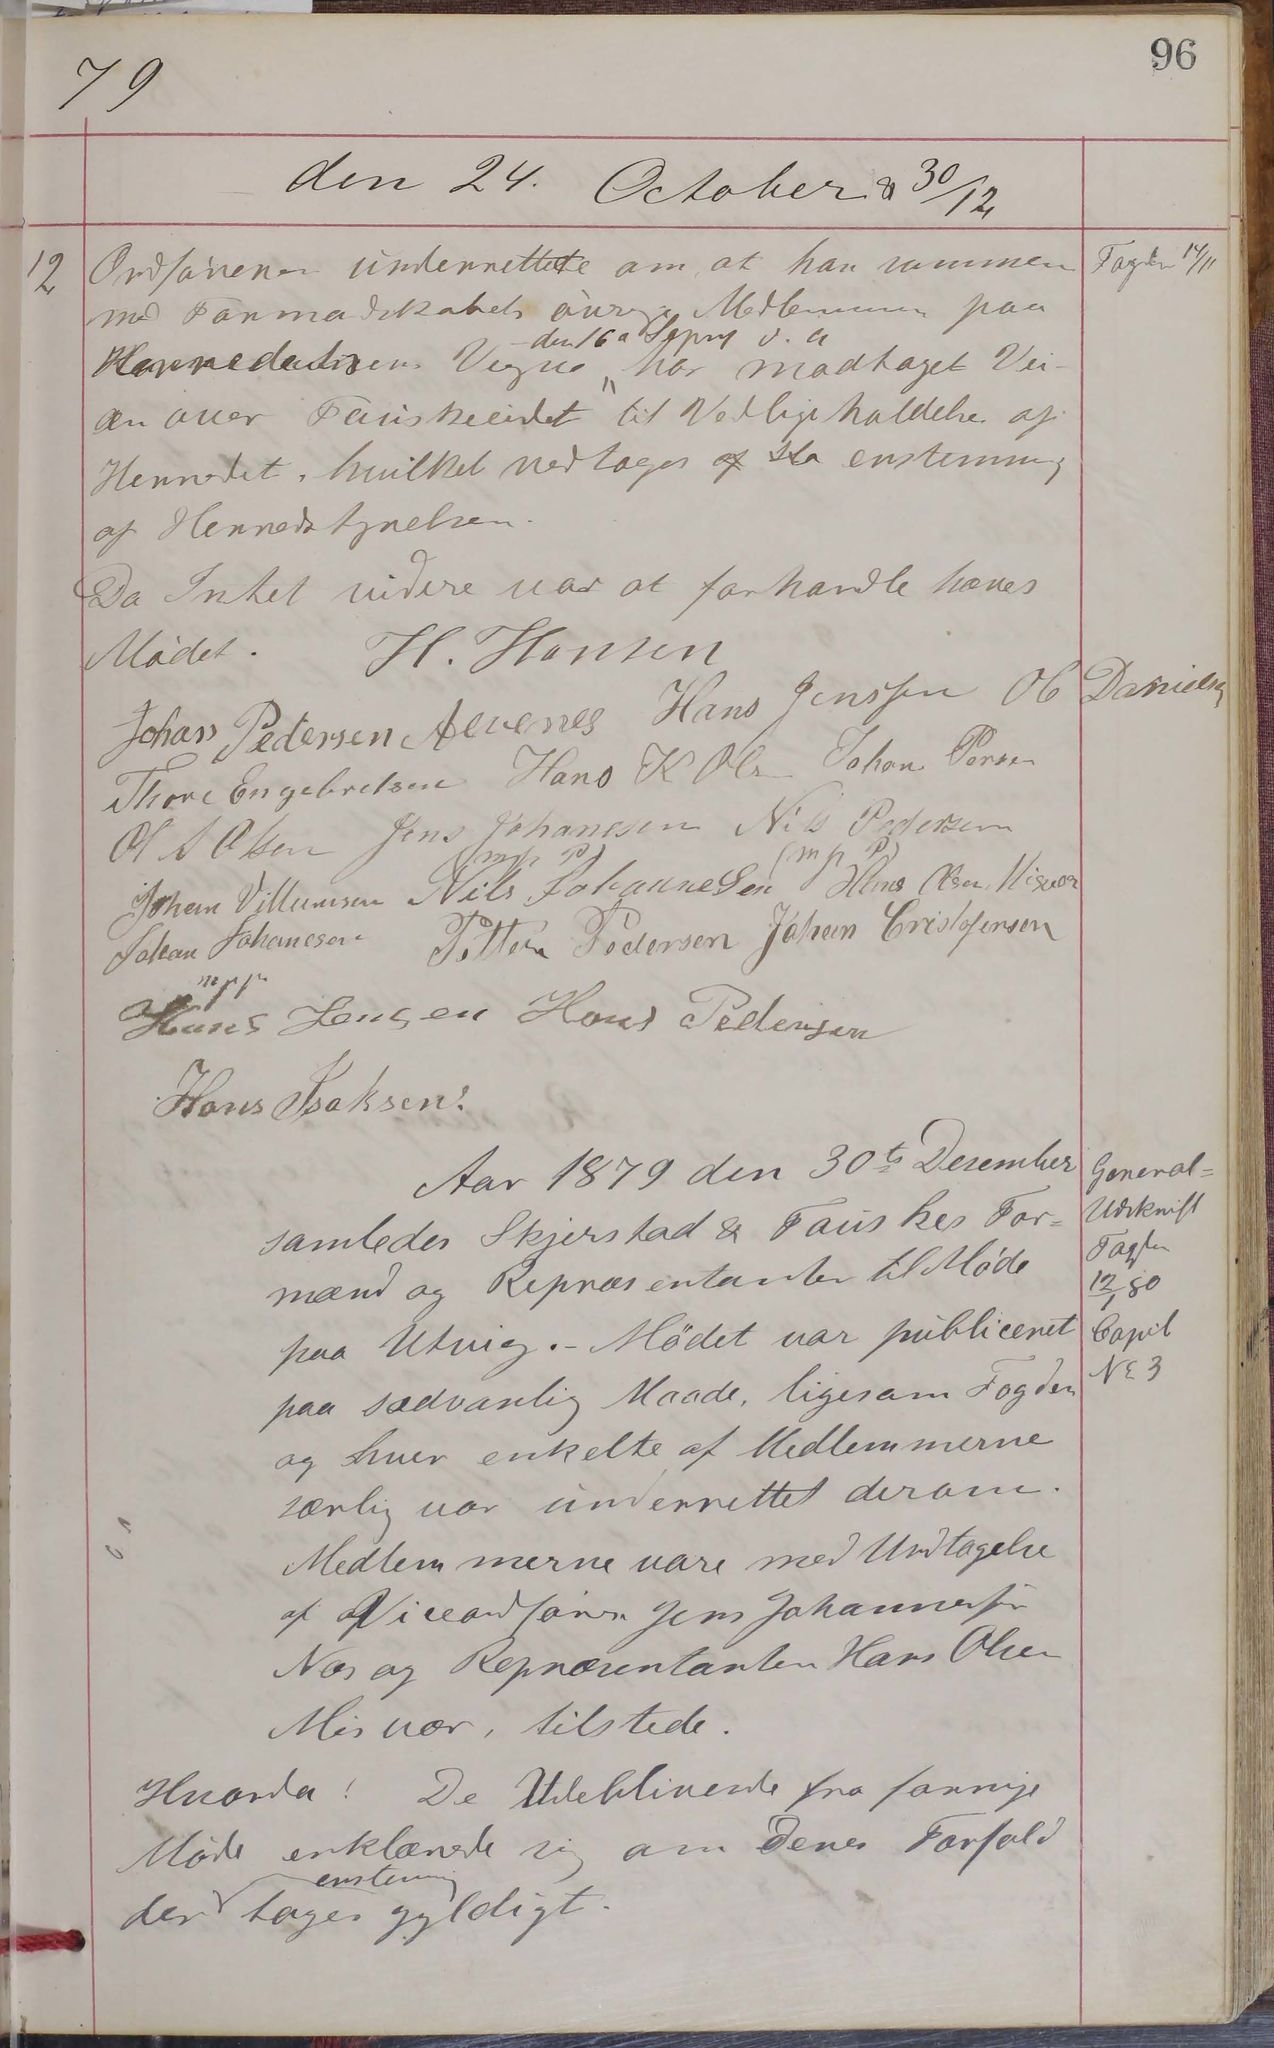 96
79
den 24. October & 30/12
12 Ordføreren underrettede om, at han sammen Fogden 14/11
med Formandskabets øvrige Medlemmer paa
den 16a Septr d. a
Herredets Vegne " har modtaget Vei-
en over Fauskeeidet til Vedligeholdelse af
Herredet, hvilket vedtoges enstemmig
af Herredsstyrelsen.
Da Intet videre var at forhandle hæves
Mødet. H. Hansen
Johan Pedersen Alvenes Hans Jenssen Ol Danielsen
Thore Engebretsen Hans K Olsen Johan Persen
Ol A Olsen Jens Johanesen Nils Pedersen
(m p P) (m p P)
Johan Villumsen Nils Johannesen Hans Olsen Misvær
Johan Johanesen Petter Pedersen Johan Cristofersen
m p p
Hans Jensen Hans Pedersen
Hans Isaksen.
Aar 1879 den 30te Desember General-
samledes Skjerstad & Fauskes For- Udskrift
mænd og Repræsentanter til Møde Fogden
12/1 80
paa Utvig. - Mødet var publiceret Copil
paa sædvanlig Maade, ligesom Fogden No 3
og hver enkelte af Medlemmerne
særlig var underrettet derom.
Medlemmerne vare med Undtagelse
af Viceordfører Jens Johannessen
Næs og Repræsentanten Hans Olsen
Misvær, tilstede.
Hvorda! De Udeblivende fra forrige
Møde erklærede sig om deres Forfald
enstemmig
der toges gyldigt.